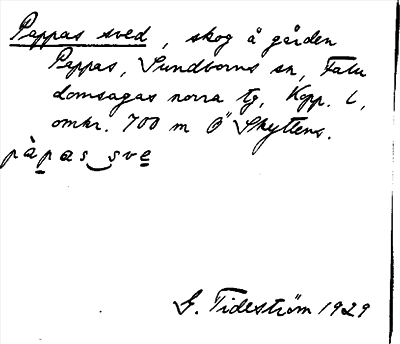 Pappas sved, skog å gården
Pappas, Sundborns sn, Falu
domsagas norra tg, Kopp. l,
omkr. 700 m Ö Skyttens.
pàpas sve
G. Tideström 1929